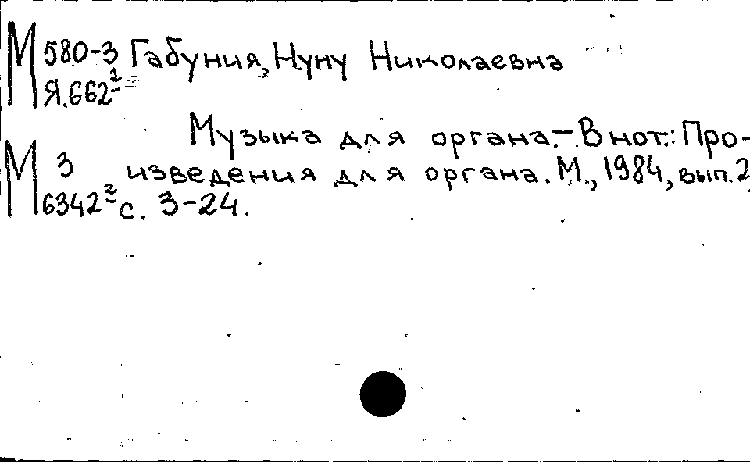 М 580-3 Габуния, Нуну Николаевна
Я.662²
Музыка для органа. – В нот.: Про-
М 3 изведения для органа. М., 1984, вып. 2
6342² с. 3-24.